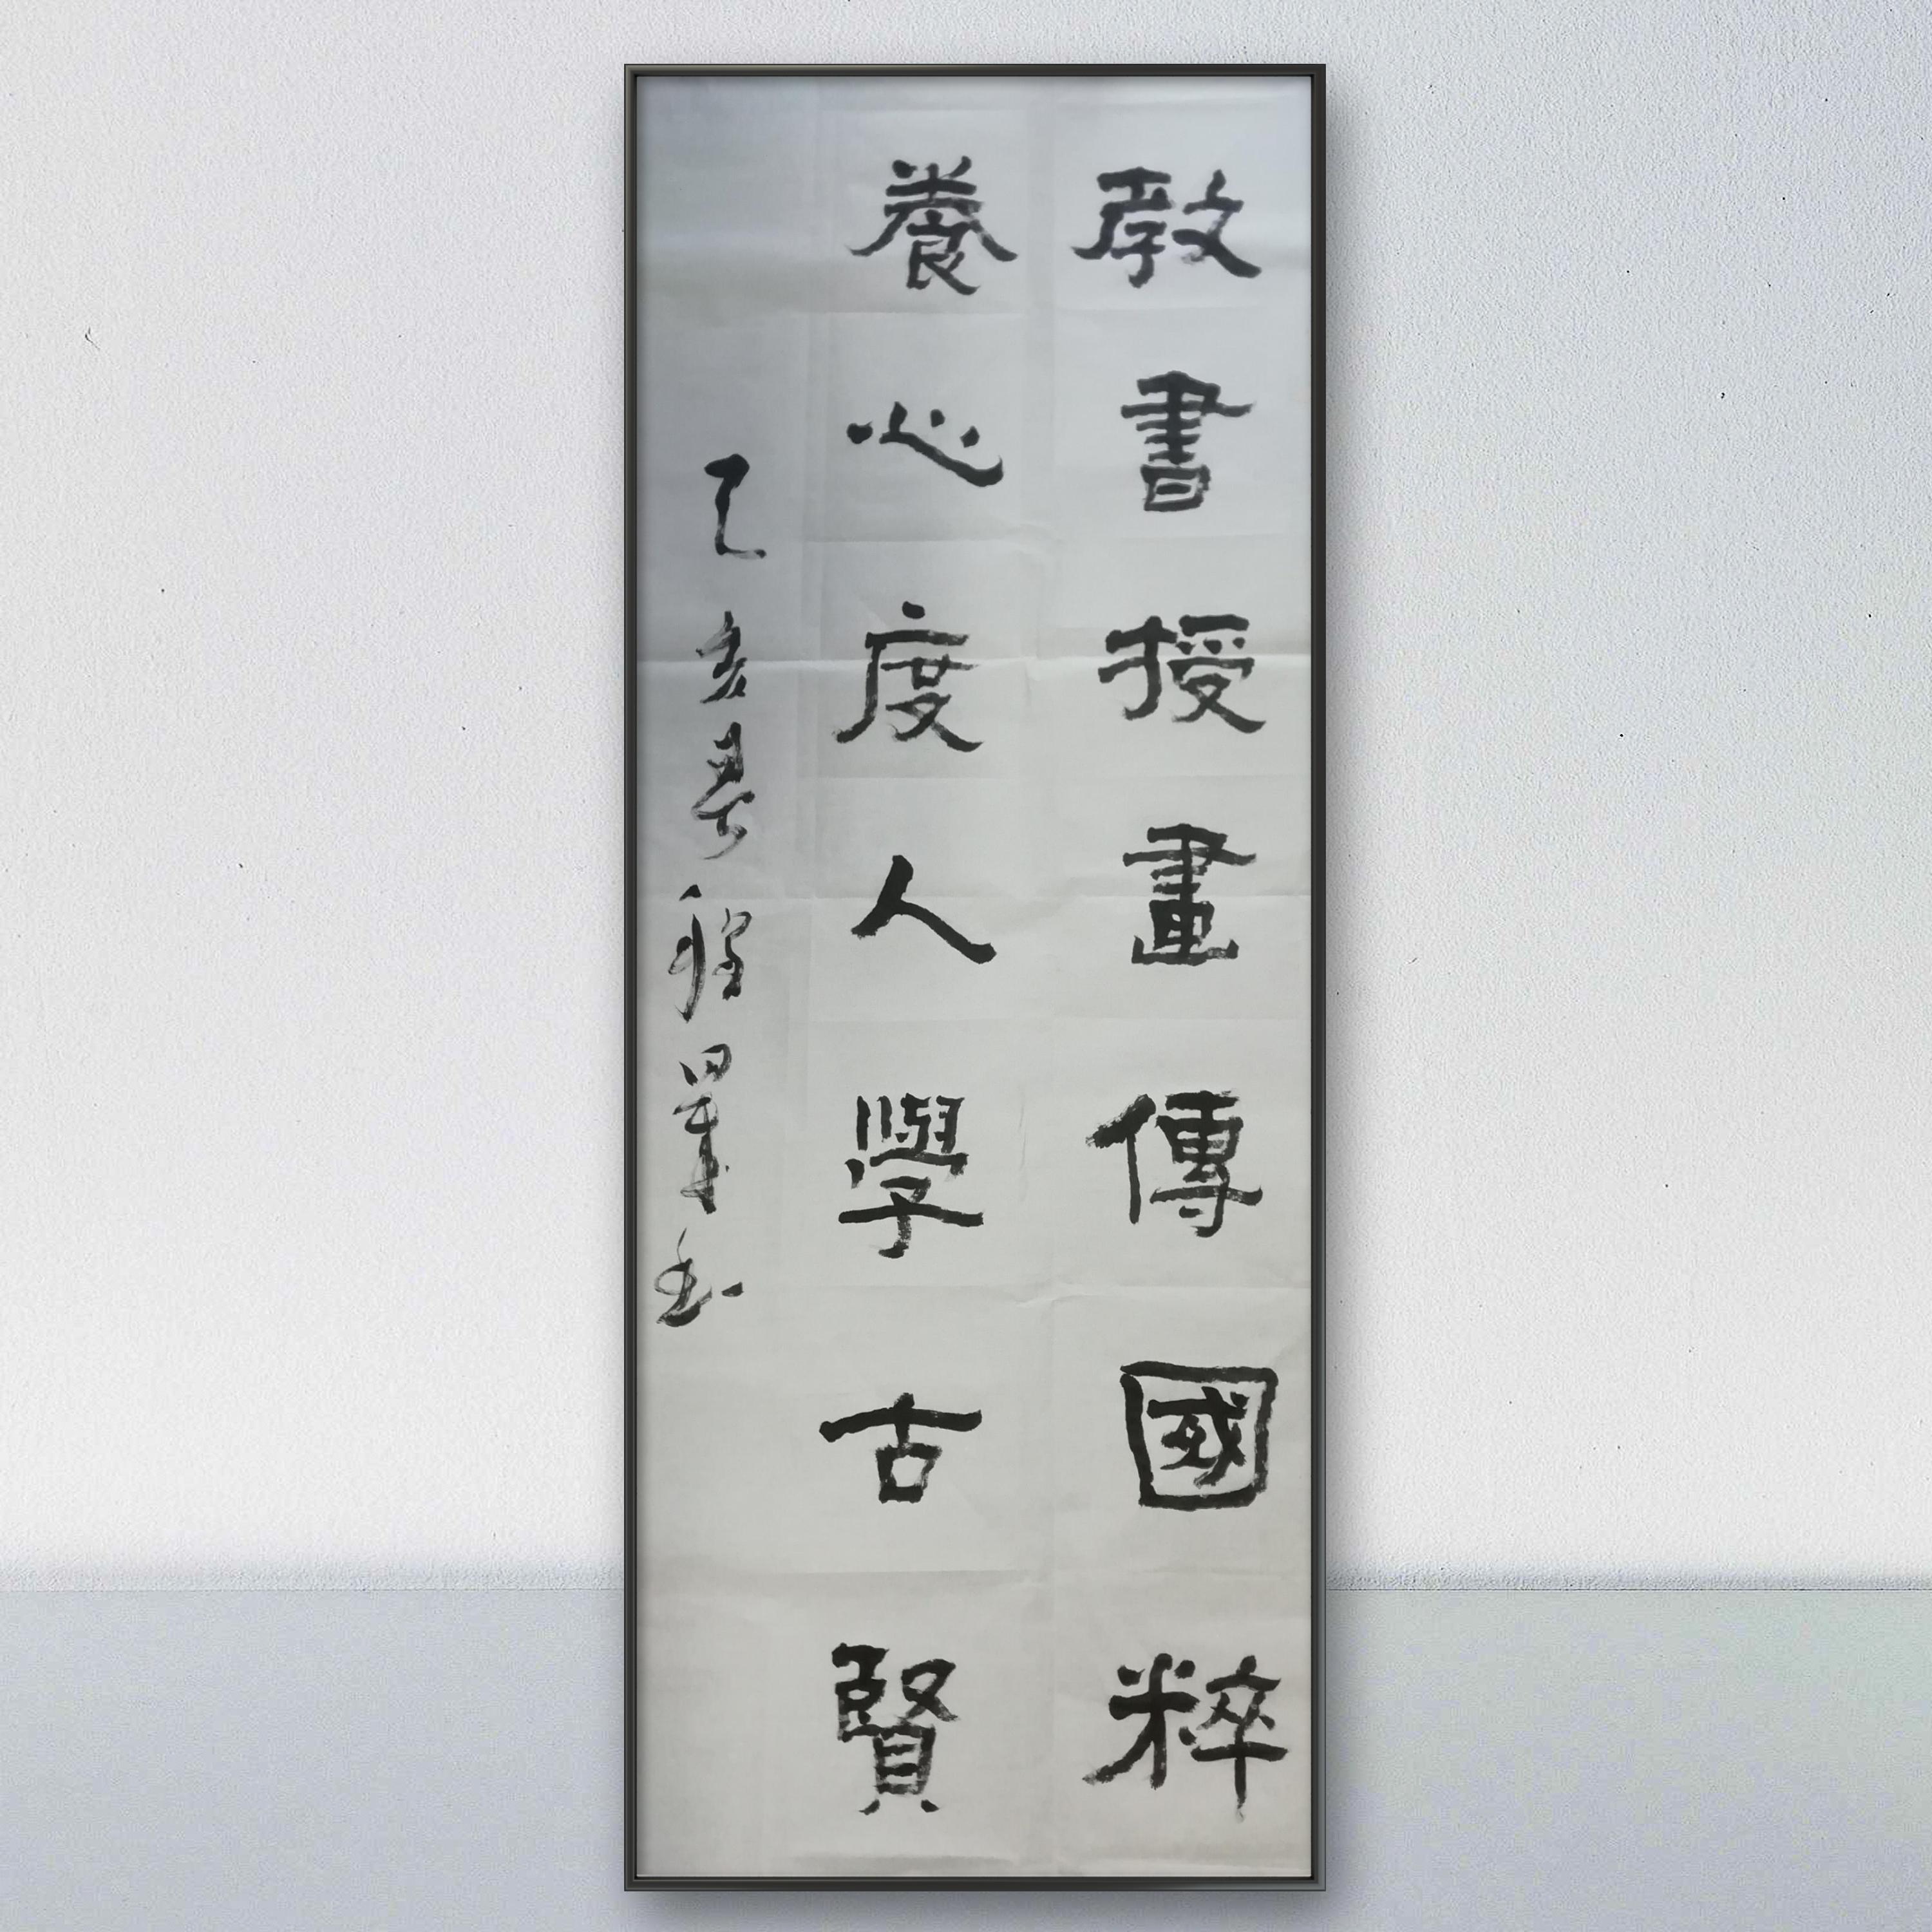 教書授畫傳國粹
養心度人學古賢
己亥春程四軍書